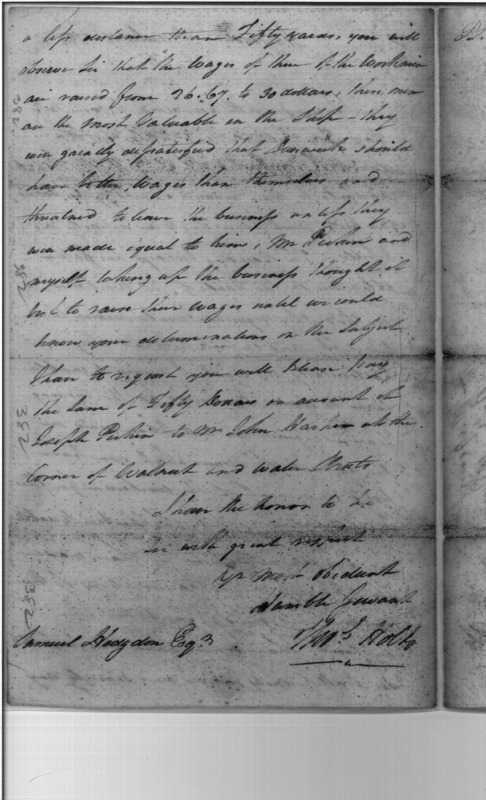 a less distance than Fifty yards, you will
observe Sir that the Wages of three of the Workmen
are raised from 26.67. to 30 dollars, these men
are the most Valuable in the Shop - they
were greatly dissatisfied that should
have better Wages than themselves and
threatned to leave the business unless they
were made equal to him, Mr Perkin and
myself talking up the business thought it
best to raise their wages until we could
know your determinations on the Subject
I have to request you will please pay
the Sum of Fifty Dollars on account of
Joseph Perkin to Mr John at the
Corner of Walnut and Water Streets
I have the honor to be
Sir with great respect
Yr most Obedient
Humble Servant
Samuel Hodgdon Esqr
Thos. Holt
382
382
382
382